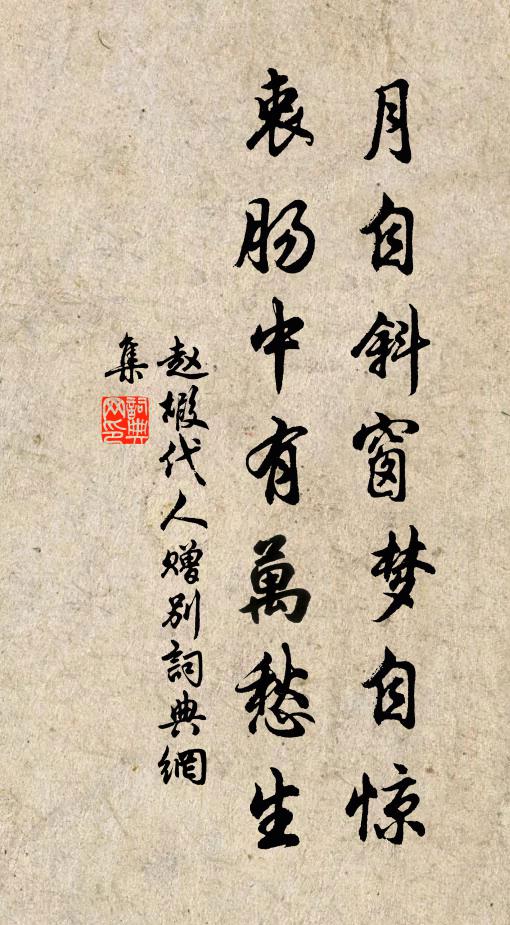 月自斜窗梦自惊
衷肠中有萬愁生
赵嘏代人赠别詞典網
集
詞典網印